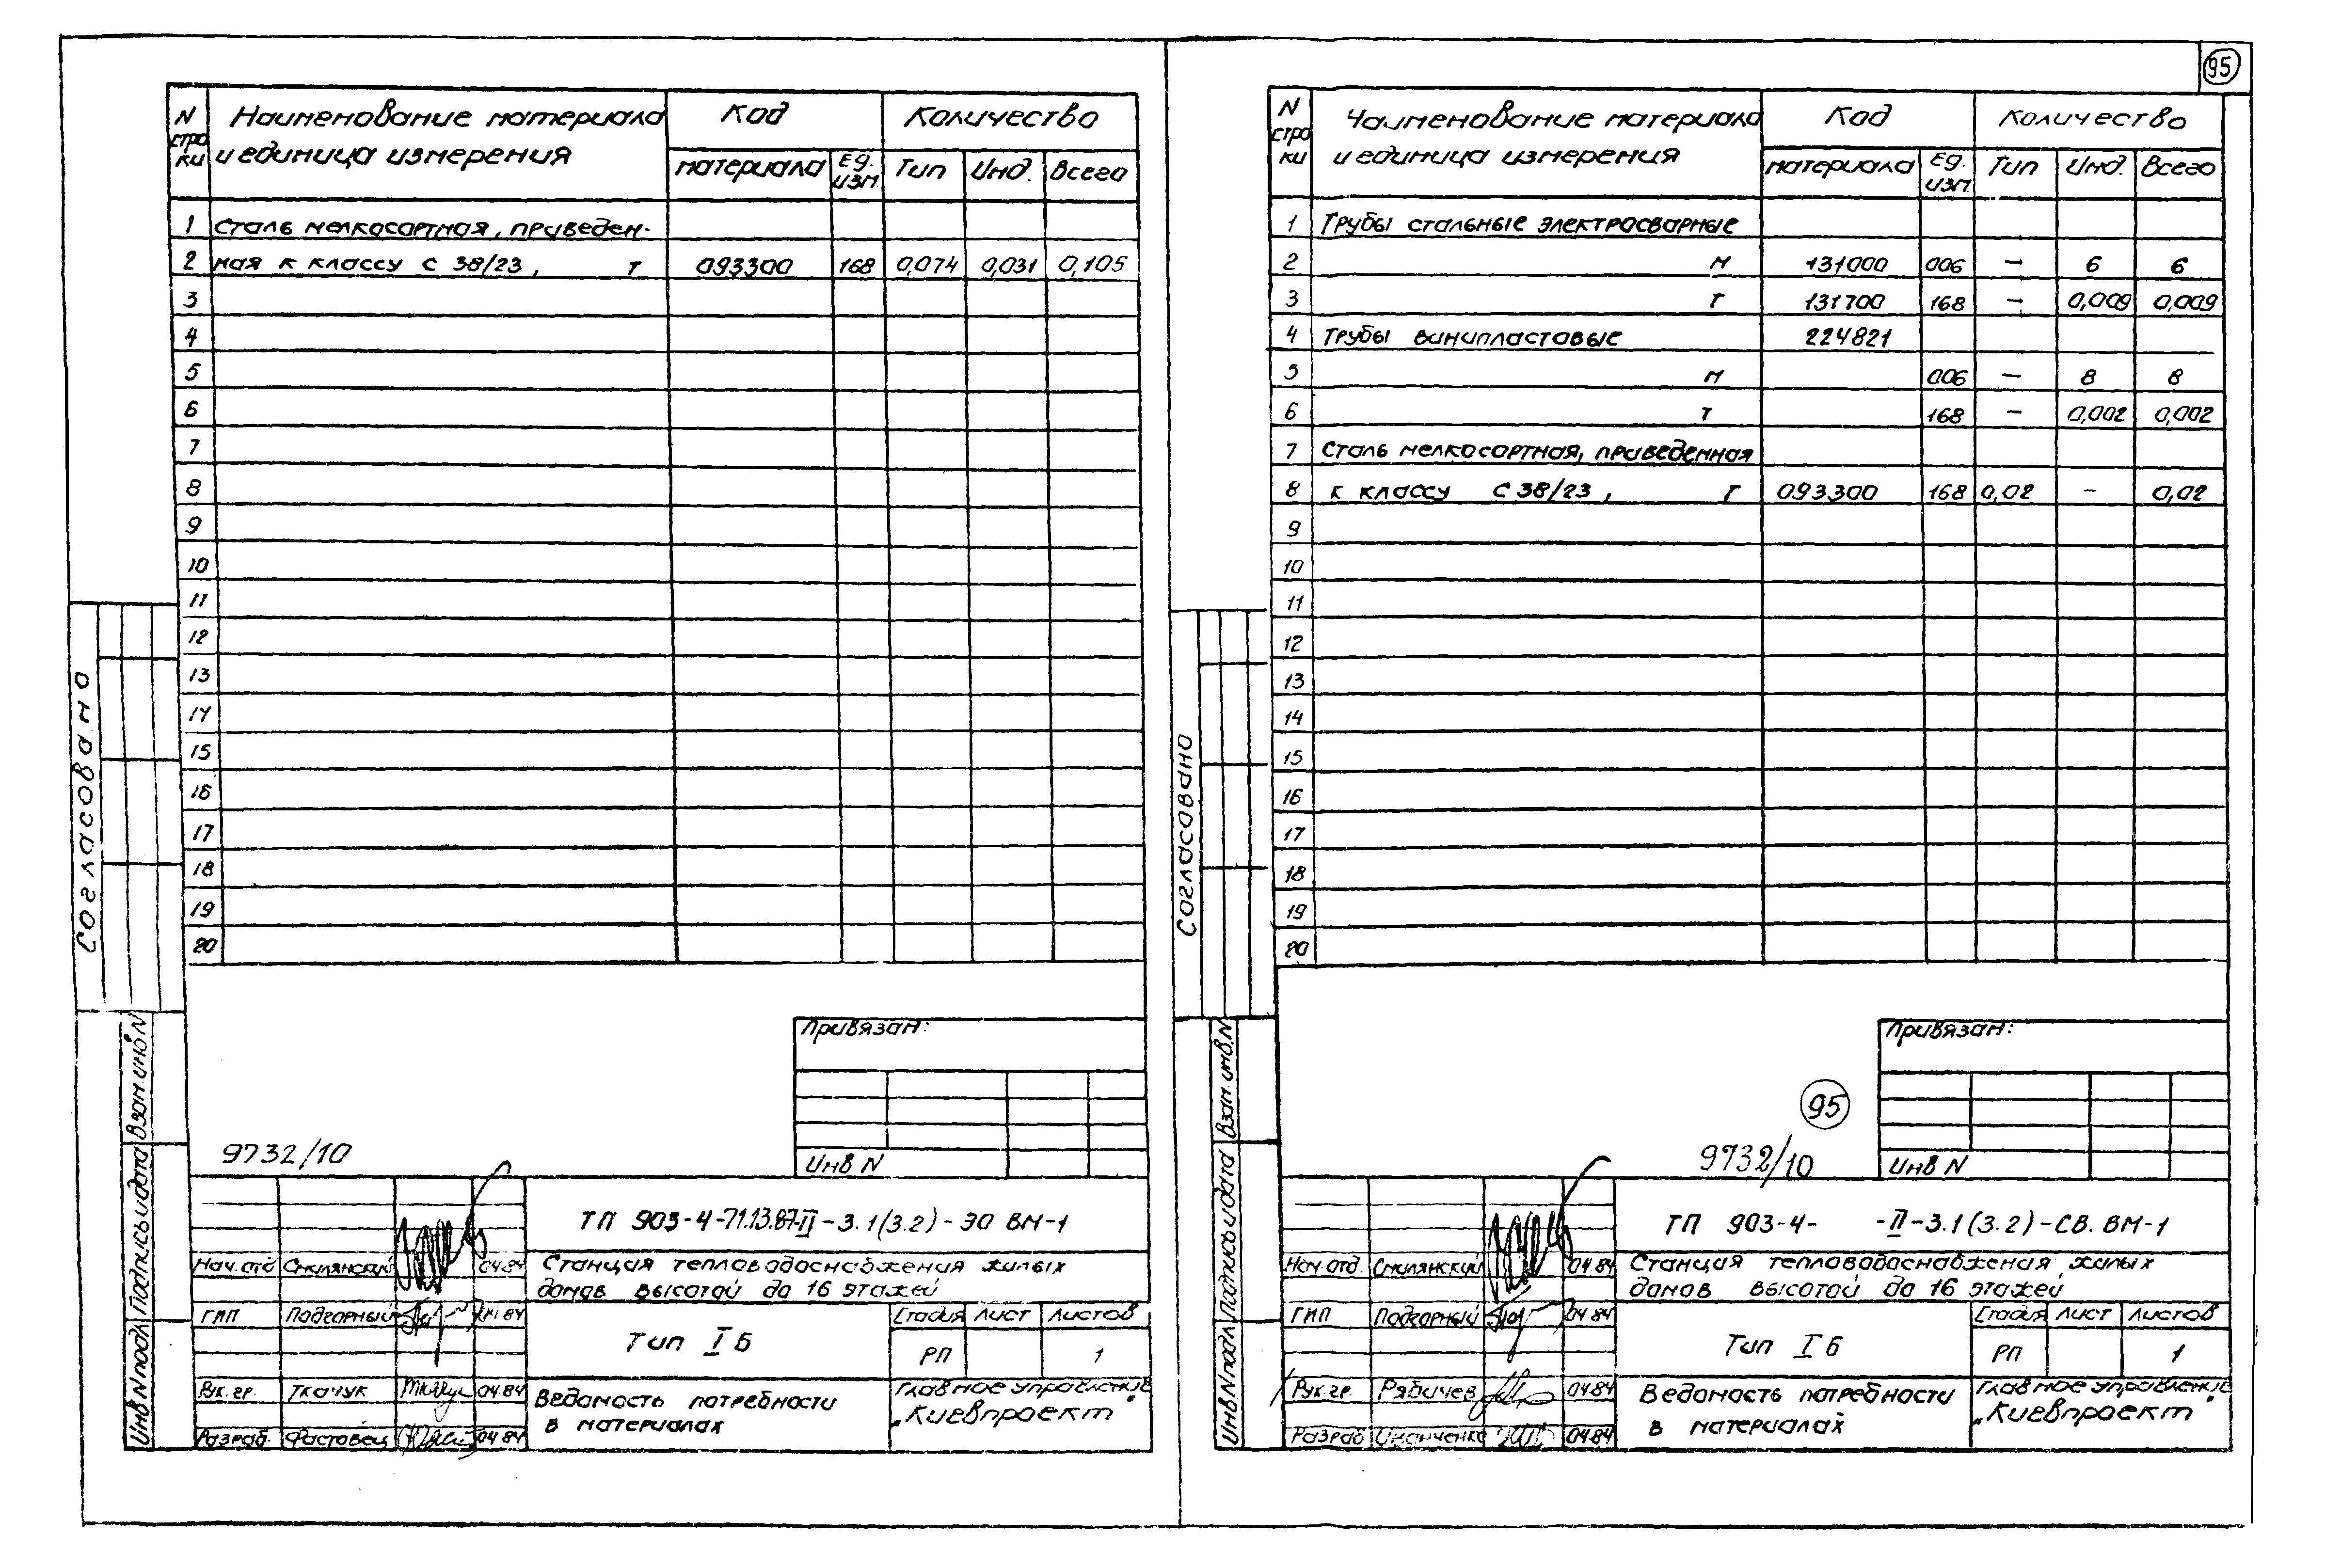 95
N строки Наименование материала и единица измерения Код Количество
материала Ед. изм Тип Инд. Всего
1 Сталь мелкосортная, приведен-
2 ная к классу С 38/23, т 093300 168 0,074 0,031 0,105
3
4
5
6
7
8
9
10
11
12
13
14
15
16
17
18
19
20
Согласовано
Взам. инв N
Подпись и дата
Инв N подл
Привязан:
Инв N
9732/10
ТП 903-4-71.13.87-II-3.1(3.2)-ЭО ВМ-1
Нач. отд Смилянский 04.84
Станция тепловодоснабжения жилых
домов высотой до 16 этажей
ГИП Подгорный 04.84
Тип I Б
Стадия Лист Листов
РП 1
Рук. гр. Ткачук 04.84
Разраб. Фастовец 04.84
Ведомость потребности
в материалах
Главное управление
„Киевпроект"
N строки Наименование материала и единица измерения Код Количество
материала Ед. изм Тип Инд. Всего
1 Трубы стальные электросварные
2 м 131000 006 — 6 6
3 т 131700 168 — 0,009 0,009
4 Трубы винипластовые 224821
5 м 006 — 8 8
6 т 168 — 0,002 0,002
7 Сталь мелкосортная, приведенная
8 к классу С 38/23, т 093300 168 0,02 - 0,02
9
10
11
12
13
14
15
16
17
18
19
20
Согласовано
Взам. инв. N
Подпись и дата
Инв N подл
Привязан:
Инв N
95
9732/10
ТП 903-4- -II-3.1(3.2)-СВ. ВМ-1
Нач. отд. Смилянский 04.84
Станция тепловодоснабжения жилых
домов высотой до 16 этажей
ГИП Подгорный 04.84
Тип I Б
Стадия Лист Листов
РП 1
Рук. гр. Рябичев 04.84
Разраб Иванченко 04.84
Ведомость потребности
в материалах
Главное управление
„Киевпроект"